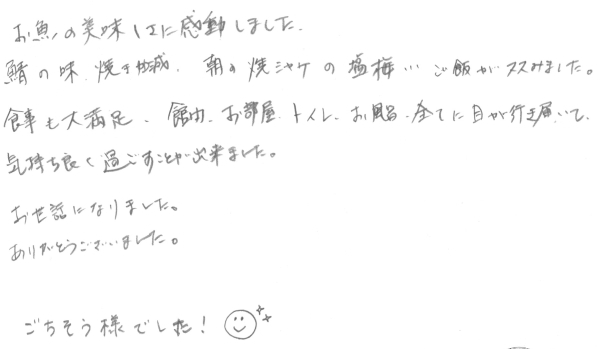 お魚の美味しさに感動しました。
鯖の味、焼き加減、朝の焼シャケの塩梅… ご飯がススみました。
食事も大満足、館内、お部屋、トイレ、お風呂、全てに目が行き届いて、
気持ち良く過ごすことが出来ました。
お世話になりました。
ありがとうございました。
ごちそう様でした！